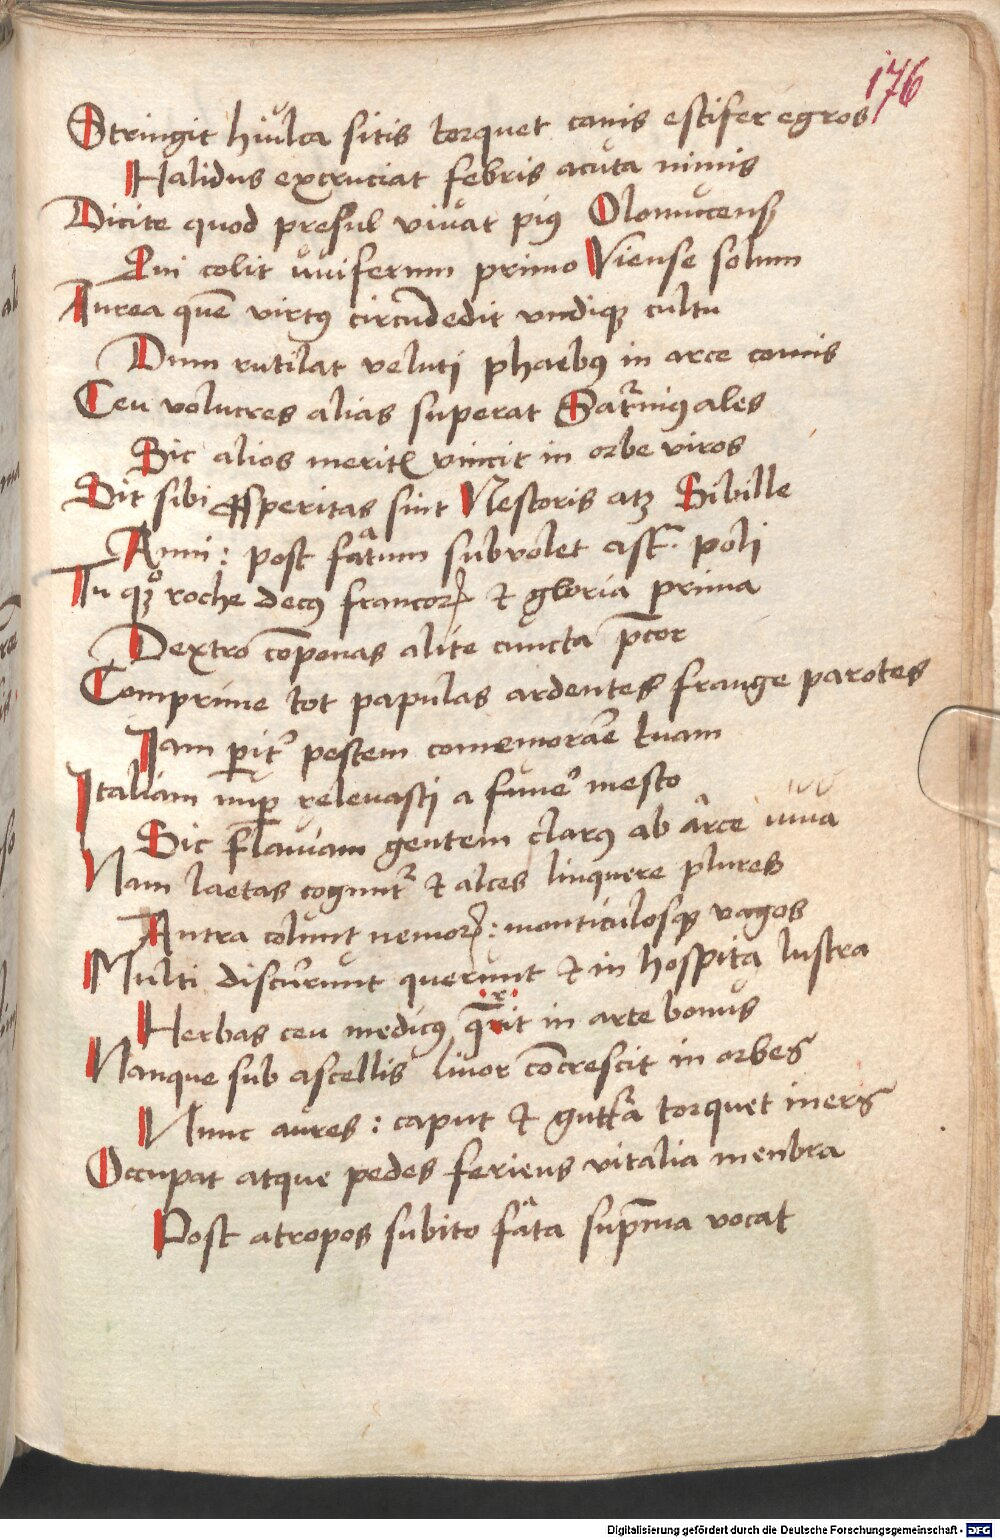 176
Stringit hiulca sitis torquet canis estifer egros
Halidus excruciat febris acuta nimis
Dicite quod presul viuat piꝰ Olomucensꝭ
Qui colit vuiferum primo Viense solum
Aurea quē virtꝰ circūdedit vndiqꝫ cultu
Dum rutilat velutj phaebꝰ in arce comis
Ceu volucres alias superat Satᵘrnigales
Sic alios meritꝭ vincit in orbe viros
Sit sibi ꝓsperitas sint Nestoris atqꝫ Sibille
Anni: post fatum subuolet astᵃ polj
Tu qꝫ° roche decꝰ francorꝝ & gloria prima
Dextro cōponas alite cuncta p̄cor
Comprime tot papulas ardentes frange parotes
Iam ꝑitʳ pestem comemorare tuam
Italiam nuꝑ releuastj a funeʳ mesto
Sic Flauiam gentem clarꝰ ab arce iuua
Nam laetas coguntʳ & alces linquere plures
Antra colunt nemorꝝ: monticulosqꝫ vagos
Multi discurrunt querunt & in hospita lustra
Herbas ceu medicꝰ q̄rit in arte bonus
Nanque sub ascellis liuor cōcrescit in orbes
Nunc aures: caput & guttᵃra torquet iners
Occupat atque pedes feriens vitalia menbra
Post atropos subito fata sup̄ma vocat
Digitalisierung gefördert durch die Deutsche Forschungsgemeinschaft - DFG